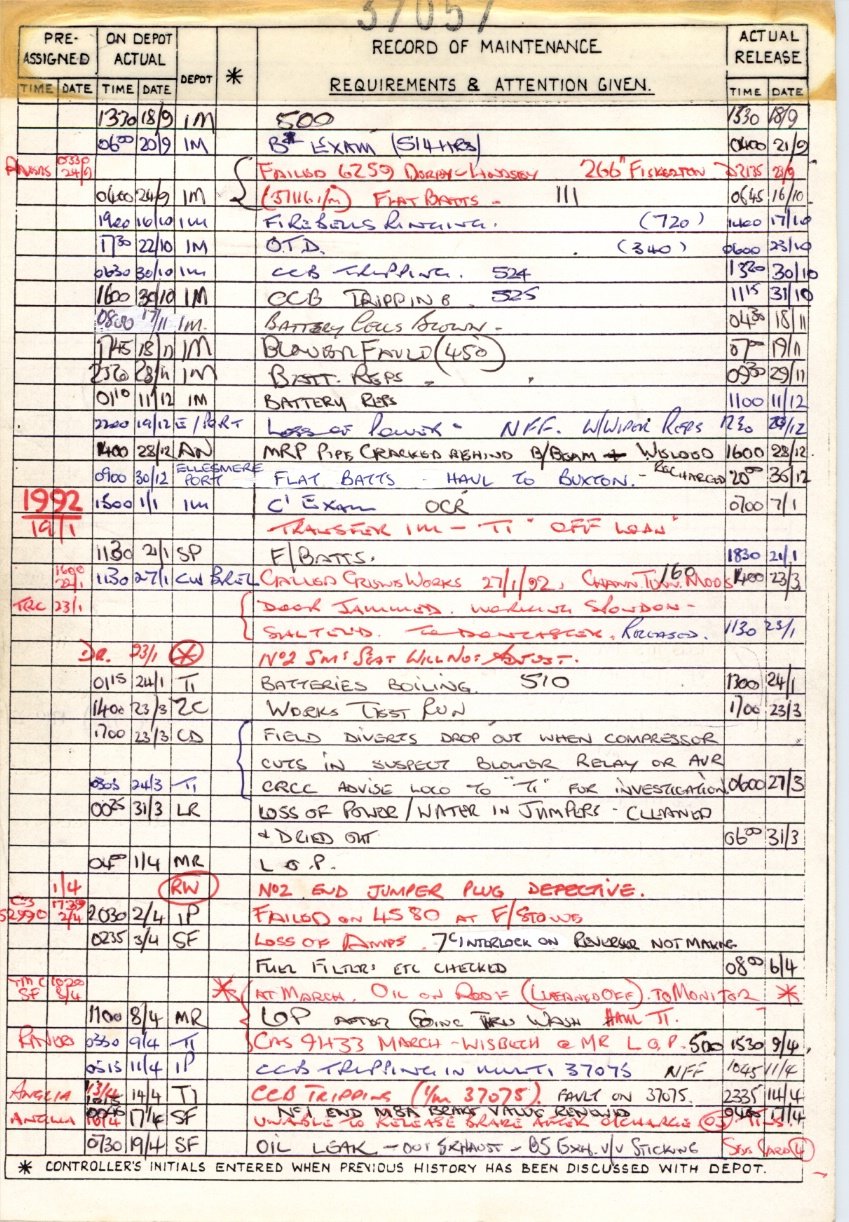 37057
PRE-ASSIGNED ON DEPOT ACTUAL DEPOT * RECORD OF MAINTENANCE REQUIREMENTS & ATTENTION GIVEN. ACTUAL RELEASE
TIME DATE TIME DATE TIME DATE
1370 18/9 IM 500 1330 18/9
0600 20/9 IM B* EXAM (514 HRS) 0400 21/9
0330 24/9 FAILED 6259 LINDSEY 266" FISKERTON 2135
0400 24/9 IM (37116 I/M) FLAT BATTS - III 0645 16/10
1920 16/10 IM FIRE BELLS RINGING. (720) 1400 17/10
1730 22/10 IM O.T.D. (340) 0600 23/10
0630 30/10 IM CCB TRIPPING. 524 1320 30/10
1600 30/10 IM CCB TRIPPING. 525 1115 31/10
0800 17/11 IM. BATTERY CELLS BLOWN - 0430 18/11
1745 18/11 IM BLOWER FAULT (450) 0700 19/11
2320 28/11 IM BATT. REPS 0930 29/11
0110 11/12 IM BATTERY REPS 1100 11/12
2200 19/12 E/PORT LOSS OF POWER - NFF. W/WIPER REPS 1230 23/12
1400 28/12 AN MRP PIPE CRACKED BEHIND B/BEAM + WELDED 1600 28/12
0900 30/12 ELLESMERE PORT FLAT BATTS - HAUL TO BUXTON. - RECHARGED 2000 30/12
1992 1300 1/1 IM C' EXAM OCR 0700 7/1
19/1 TRANSFER IM - TI "OFF LOAN"
1130 21/1 SP F/BATTS. 1830 21/1
1600 22/1 1130 27/1 CW BREL CALLED CREWE WORKS 27/1/92, CHANN. TUNN. MODS 160 1400 23/3
TRC 23/1 DOOR JAMMED. WORKING SLOWDON -
SALTEND. TO DONCASTER. RELEASED. 1130 23/1
DR. 23/1 * No2 SM's SEAT WILL NOT ADJUST.
0115 24/1 TI BATTERIES BOILING. 510 1300 24/1
1400 23/3 ZC WORKS TEST RUN 1700 23/3
1700 23/3 CD FIELD DIVERTS DROP OUT WHEN COMPRESSOR
CUTS IN SUSPECT BLOWER RELAY OR AVR
0303 24/3 TI CRCC ADVISE LOCO TO "TI" FOR INVESTIGATION 0600 27/3
0025 31/3 LR LOSS OF POWER/WATER IN JUMPERS - CLEANED
& DRIED OUT 0600 31/3
0400 1/4 MR L.O.P.
1/4 RW No2 END JUMPER PLUG DEFECTIVE.
1739 2/4 2030 2/4 IP FAILED ON 4S80 AT F/STOWE
0235 3/4 SF LOSS OF AMPS. 7C INTERLOCK ON REVERSER NOT MAKING
FUEL FILTERS ETC CHECKED 0800 6/4
TMC 1020 SF 8/4 * AT MARCH. OIL ON ROOF (CLEANED OFF). TO MONITOR *
1100 8/4 MR LOP AFTER GOING THRU WASH HAUL TI.
0330 9/4 TI CAS 9H33 MARCH - WISBECH @ MR L.O.P. 500 1530 9/4
0515 11/4 IP CCB TRIPPING IN MULTI 37075 NFF 1045 11/4
ANGLIA 13/4 14/4 TI CCB TRIPPING (I/M 37075). FAULT ON 37075. 2335 14/4
No1 END M8A BRAKE VALVE RENEWD
ANGLIA 16/4 0045 17/4 SF UNABLE TO RELEASE BRAKE AFTER O/CHARGE 17/4
0730 19/4 SF OIL LEAK - OUT EXHAUST - B5 EXH. V/V STICKING SEE CARD 4
* CONTROLLER'S INITIALS ENTERED WHEN PREVIOUS HISTORY HAS BEEN DISCUSSED WITH DEPOT.